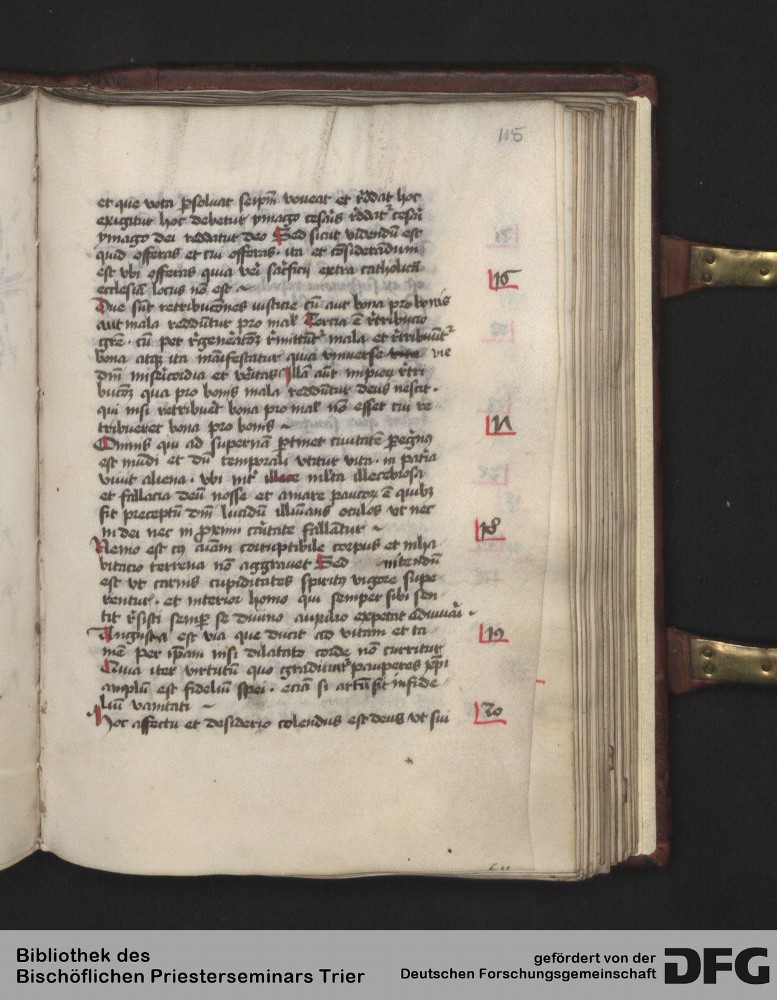 115
et que vota psoluat seipm voueat et rddat hoc
exigitur hoc debetur ymago cesaris rddat cesari
ymago dei reddatur deo Sed sicut videndu est
quid offeras et cui offeras ita et considerandum
est vbi offeras quia veri sacrificij extra catholica
ecclesia locus no est
16
Due sut retribucones iusticie cu aut bona pro bonis
aut mala reddutur pro mal Tercia e rtribucio
gre cu per rgneracoz rmittutur mala et rtribuutur
bona atqz ita maifestatur quia vniuerse vie
dni misericordia et veritas Illa aut impior rtri
bucoz qua pro bonis mala reddutur deus nescit
qui nisi retribueret bona pro mal no esset cui re
tribueret bona pro bonis
17
Omnis qui ad superna ptinet ciuitate pegrinus
est mudi et du temporali vtitur vita in patria
viuit aliena vbi int illece mlta illecebrosa
et fallacia deu nosse et amare paucor e quibz
fit preceptu dni lucidu illuians oculos vt nec
in dei nec in proximi caritate fallatur
18
Nemo est cuius aiam corruptibile corpus et inha
bitacio terrena no aggrauet Sed nitendu
est vt carnis cupiditates spiritus vigore supe
rentur et interior homo qui semper sibi sen
tit rsisti semp se diuino auxilio expetat adiuuari
19
Angusta est via que ducit ad vitam et ta
men per ipam nisi dilatato corde no curritur
Quia iter virtutum quo gradiuntur pauperes xpi
amplu est fidelium spei eciam si artu sit infide
liu vanitati
20
Hoc affectu et desiderio colendus est deus vt sui
Bibliothek des
Bischöflichen Priesterseminars Trier
gefördert von der
Deutschen Forschungsgemeinschaft
DFG